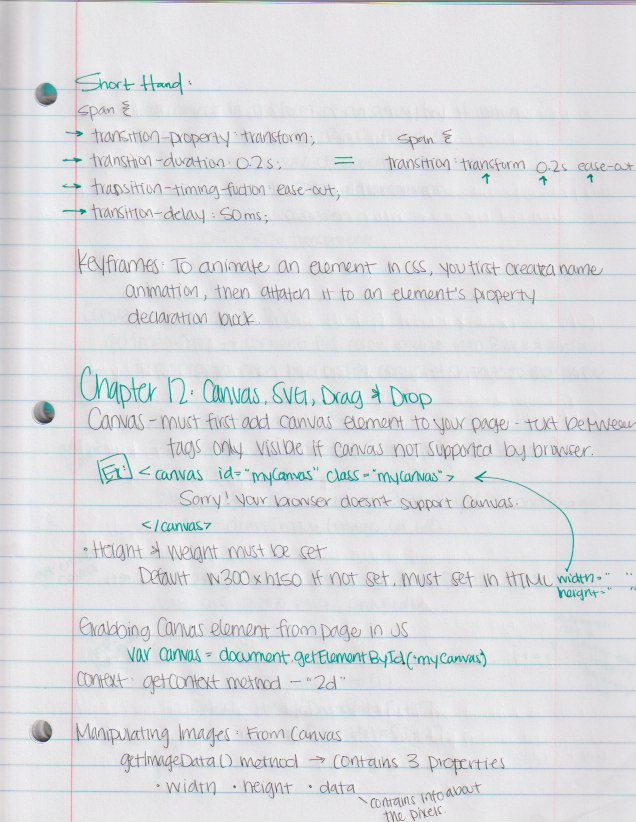 Short Hand:
span {
→ transition-property: transform;
→ transtion-duration: 0.2s;
→ transition-timing-fuction: ease-out;
→ transition-delay: 50ms;
=
span {
transition: transform 0.2s ease-out
Keyframes: To animate an element in css, you first create a name
animation, then attatch it to an element's property
declaration block.
Chapter 12: Canvas, SVG, Drag & Drop
Canvas - must first add canvas element to your page. text between
tags only visible if canvas not supported by browser.
Ex: <canvas id="myCanvas" class="mycanvas">
Sorry! Your browser doesn't support Canvas.
</canvas>
• Height & Weight must be set
Default w300xh150 if not set, must set in HTML width=" "
height=" "
Grabbing Canvas element from page in JS
var canvas = document.getElementById('myCanvas)
context: getContext method - "2d"
Manipulating Images: From Canvas
getImageData() method → contains 3 properties
• width • height • data
contains info about
the pixels.